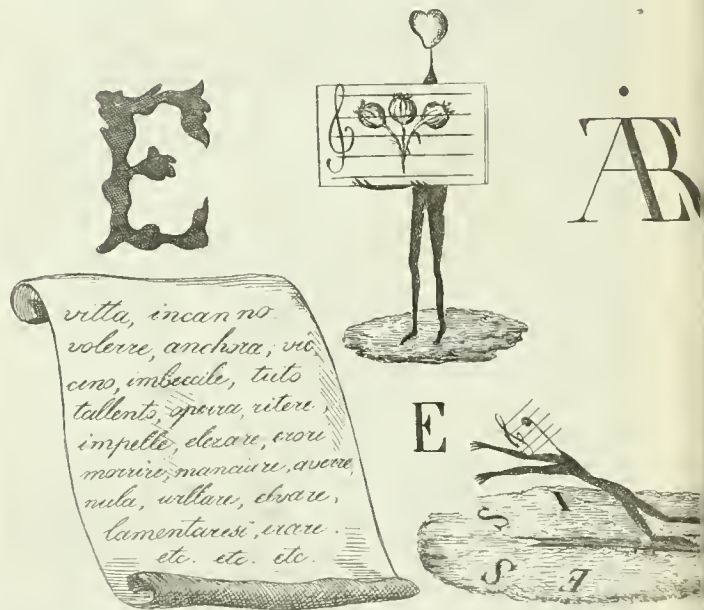 E
vitta, incanno
volerre, anchora, vic
cino, imbecile, tuto
tallento, ritere,
impelle, elezare, erore
morrire, averre,
nula, elvare,
lamentaresi, erare.
etc. etc. etc.
E
S I
S E